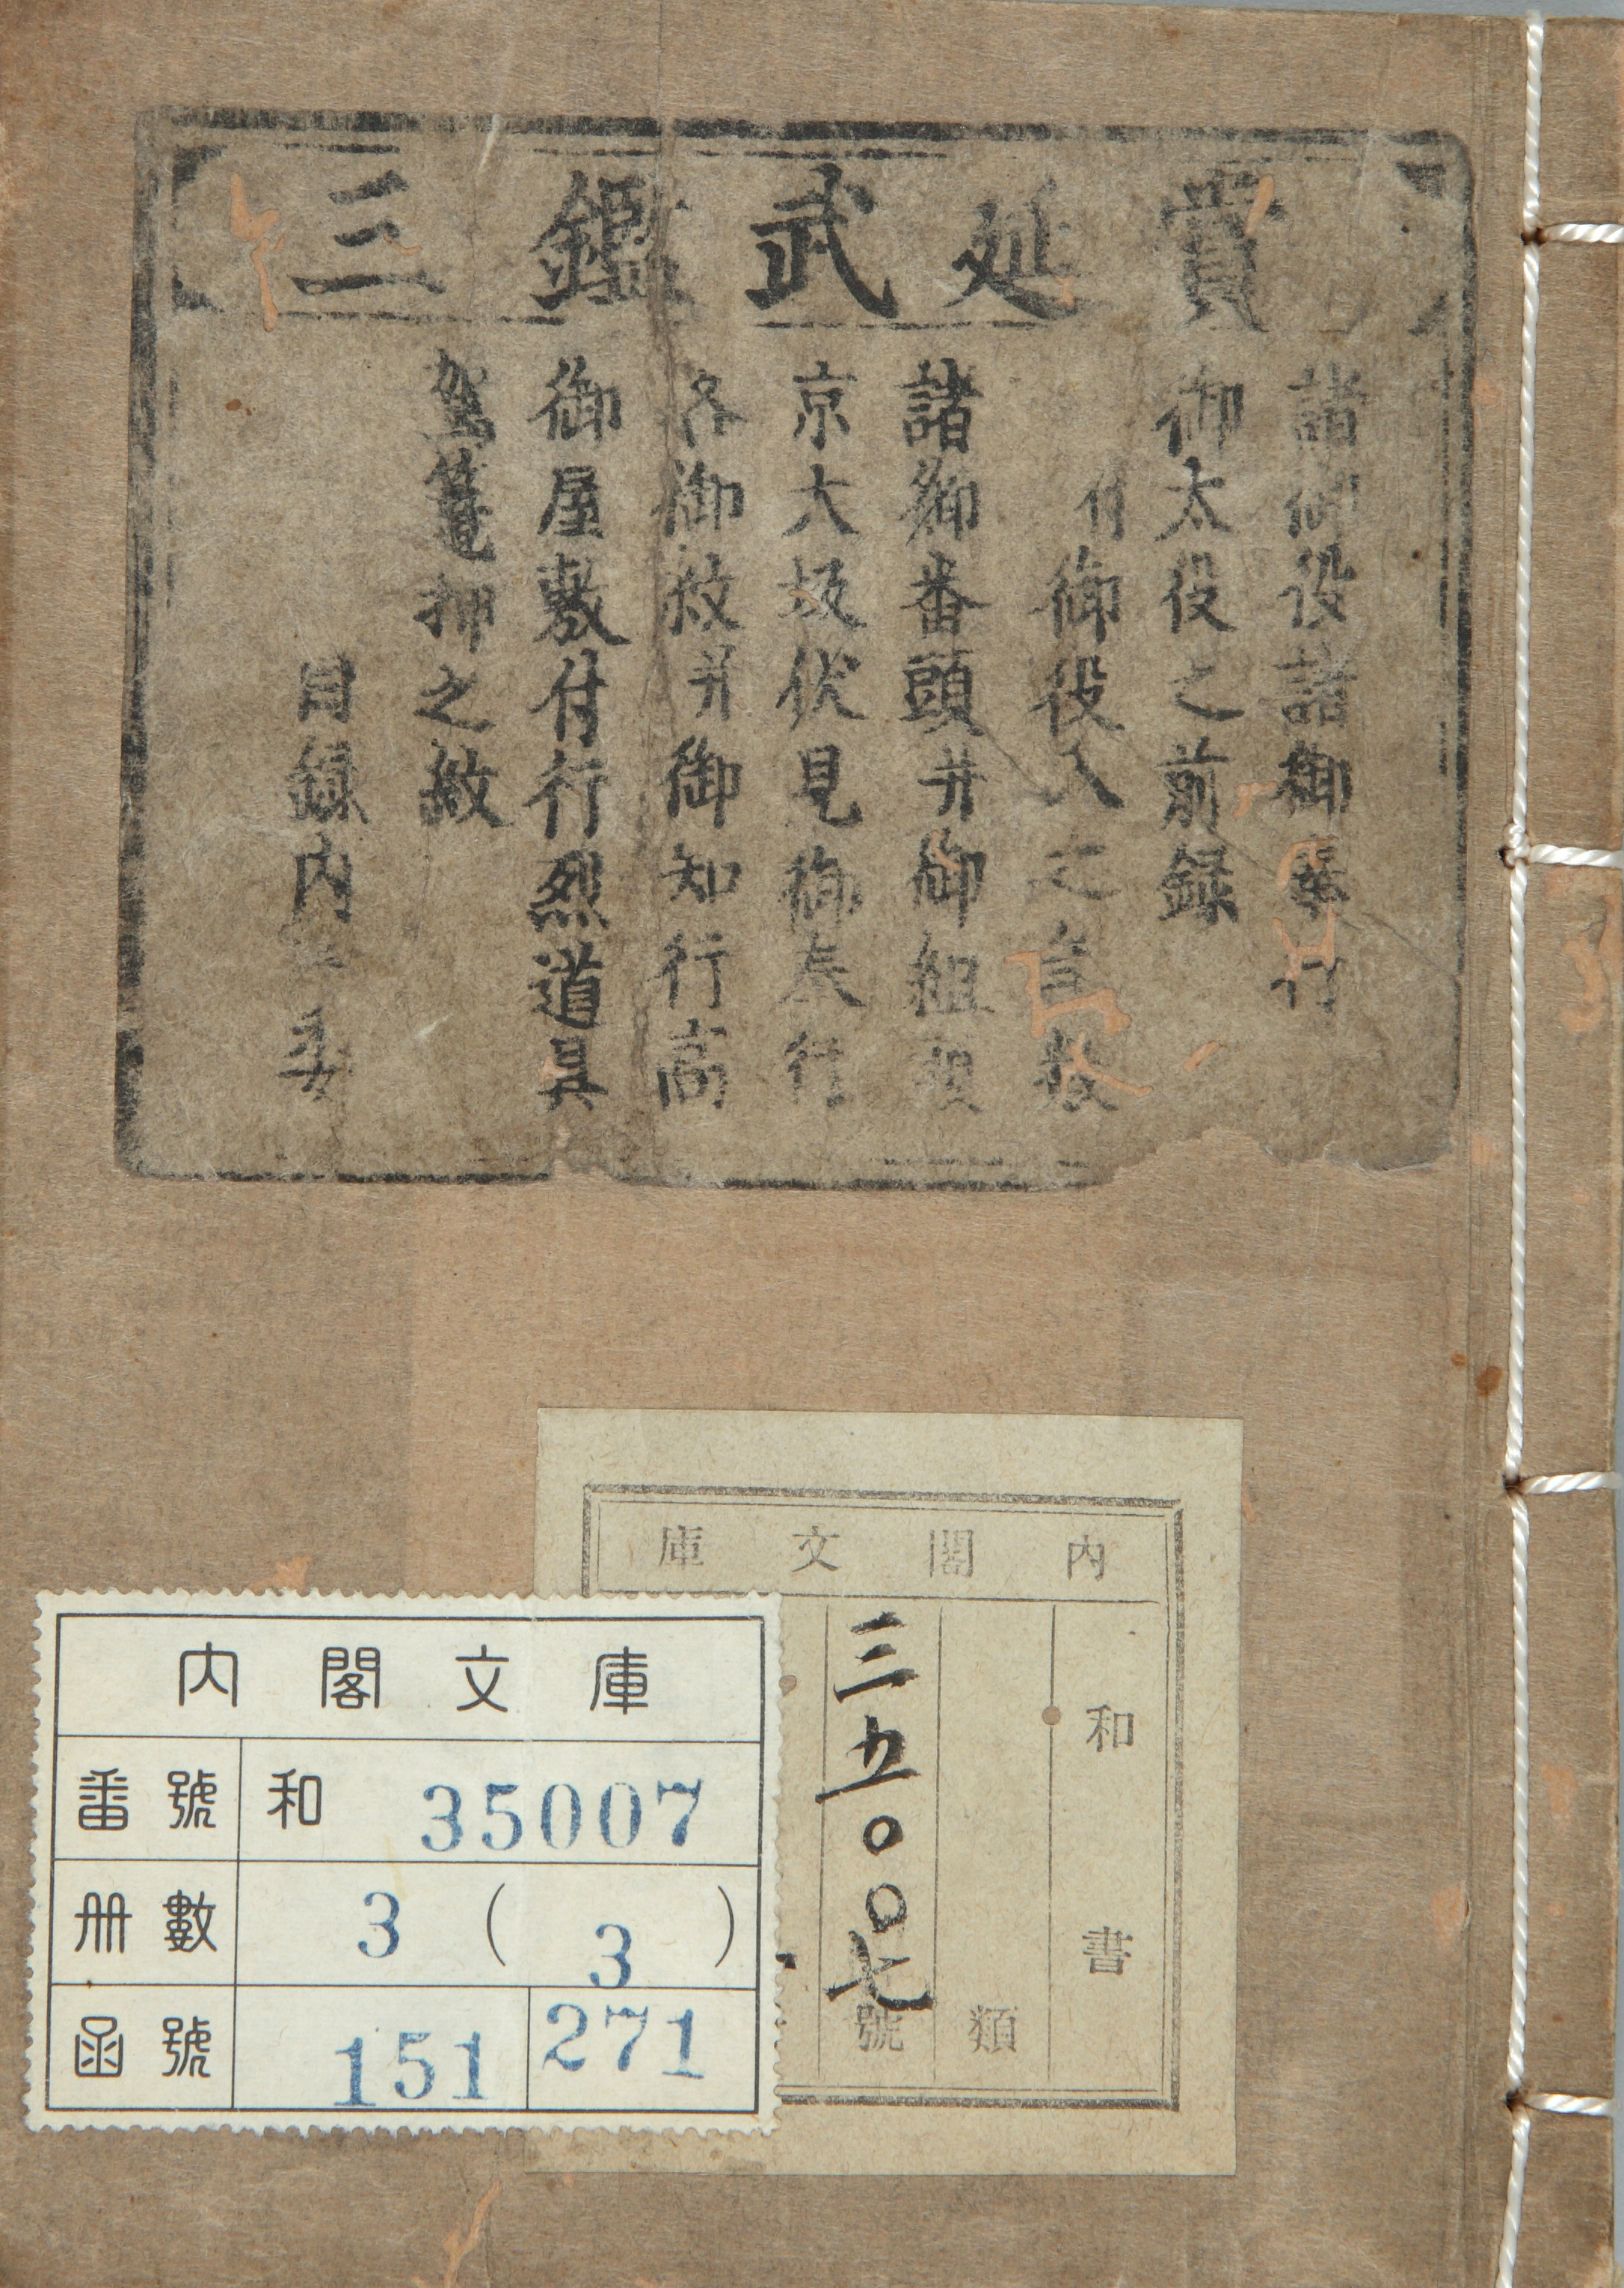 賞延武鑑三
諸御役諸御奉行
御太役之前録
付御役人之言数
諸御番頭并御組頭
京大坂伏見御奉行
各御紋并御知行高
御屋敷付行烈道具
駕篭押之紋
目録内ニ委
内閣文庫
和書
類
三五〇〇七號
内閣文庫
番號 和 35007
冊數 3 ( 3 )
函號 151 271